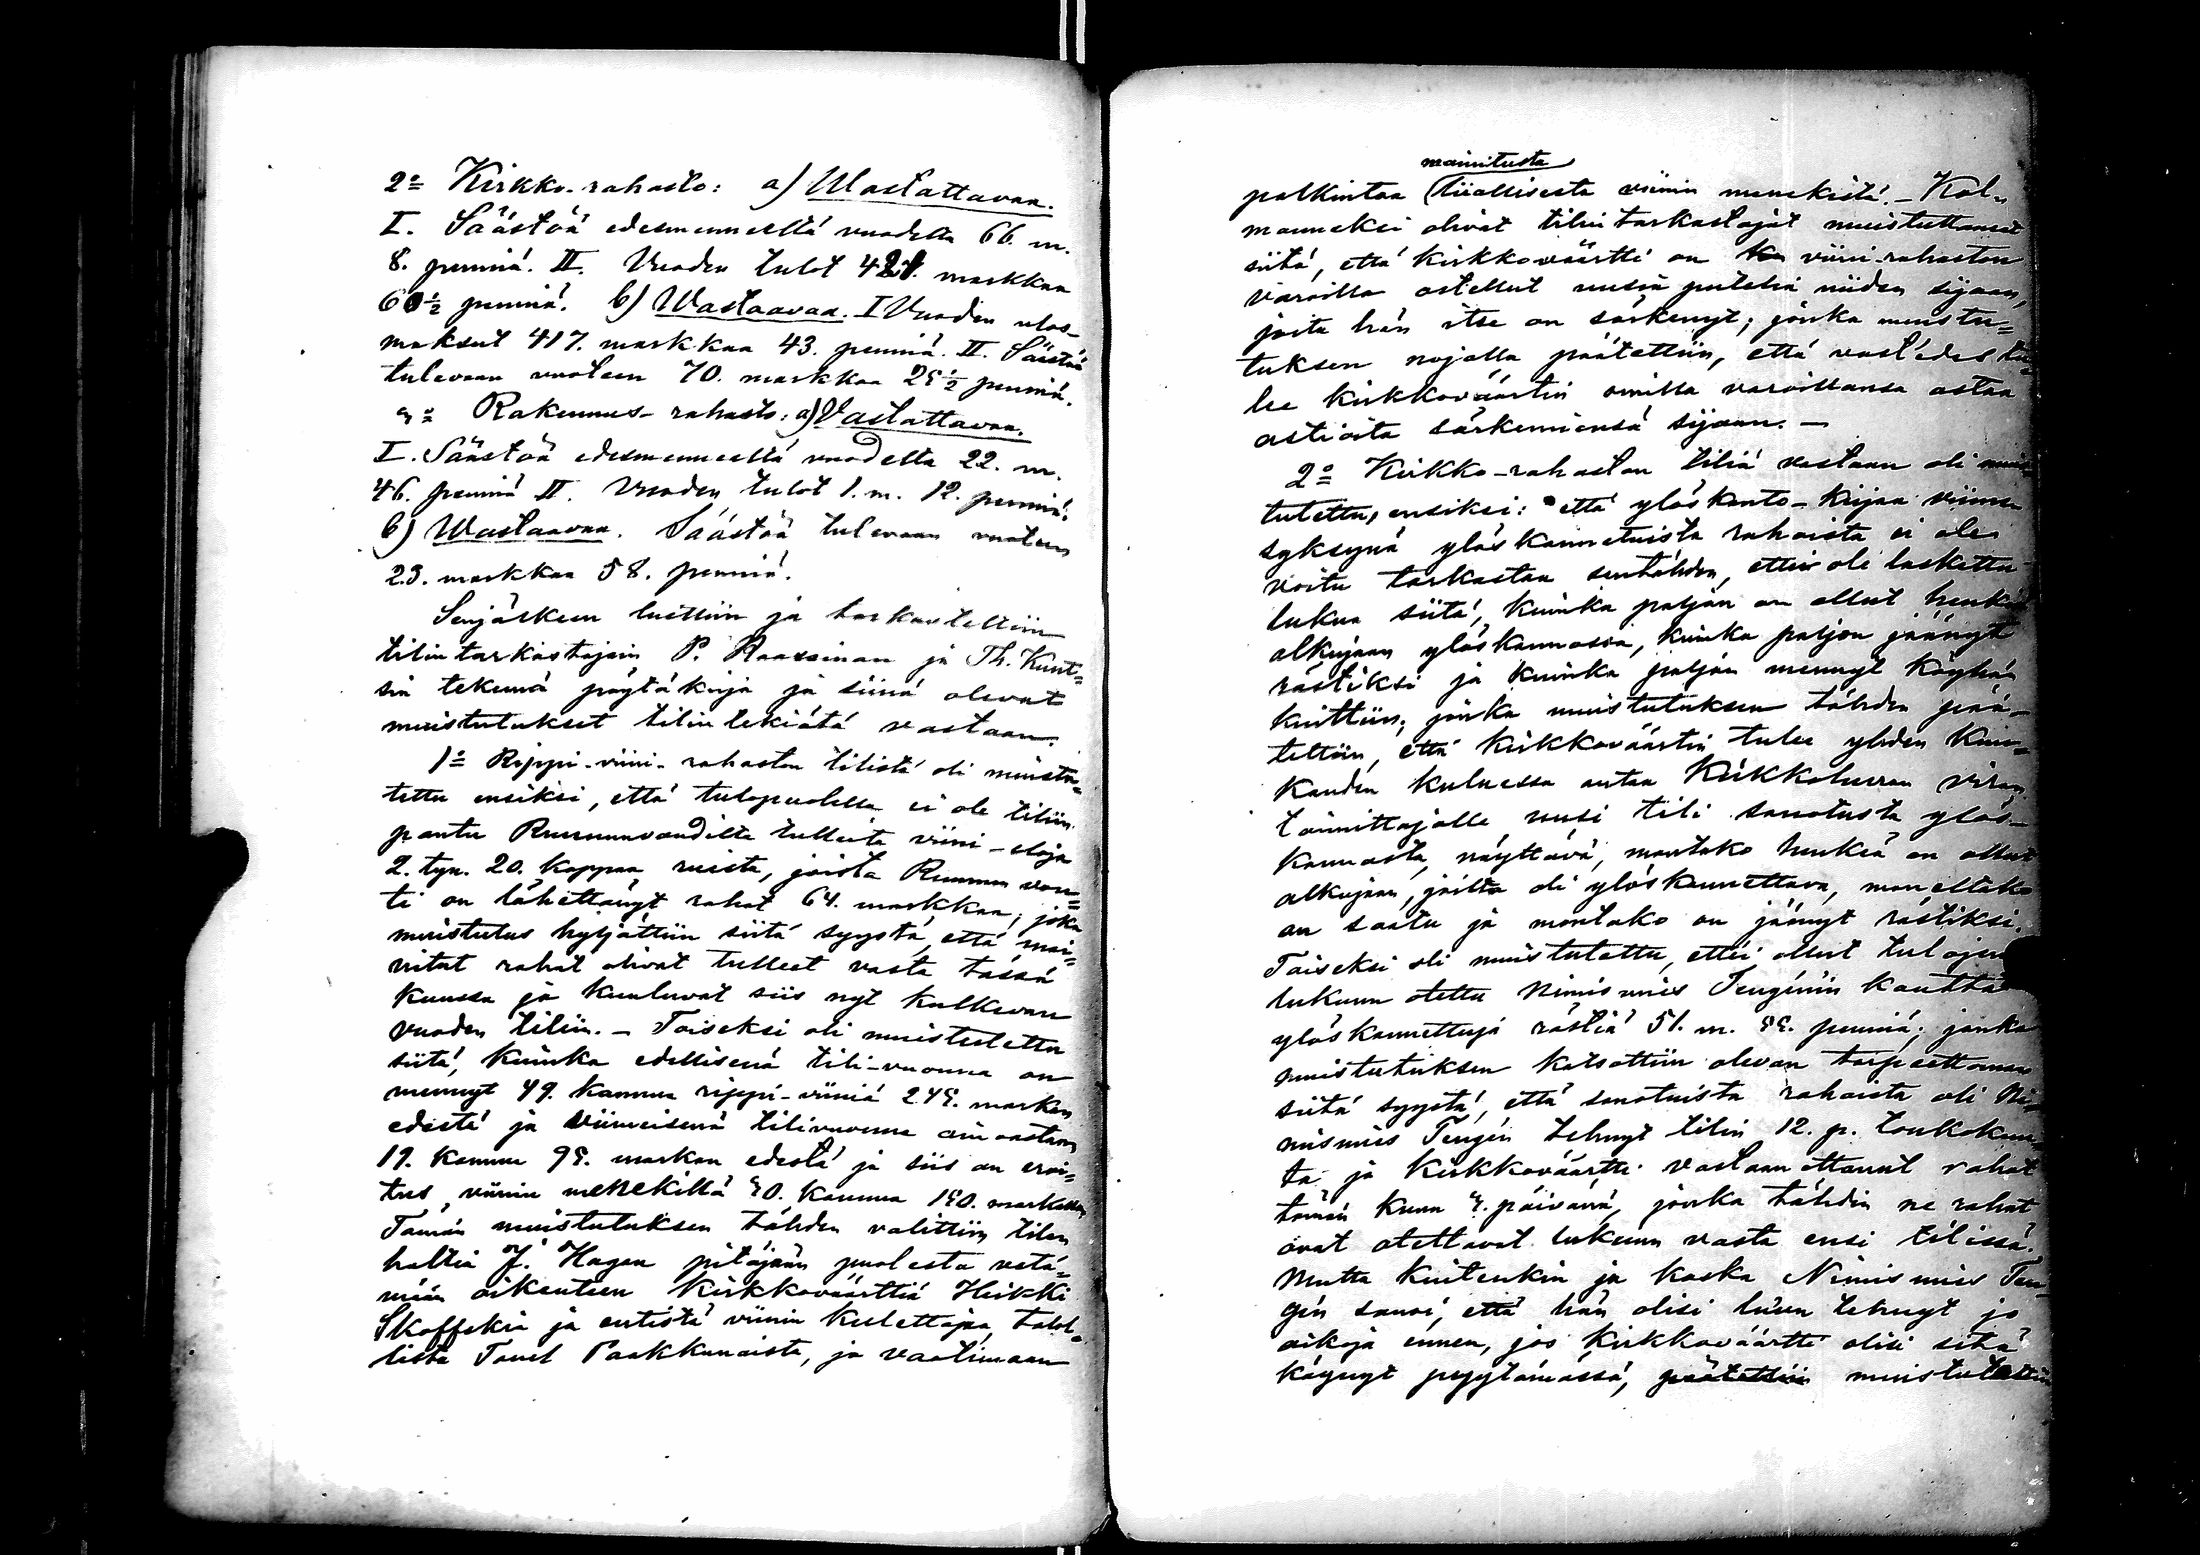 2o Kirkko-rahasto: a) Wastattavaa.
I. Säästöä edesmenneeltä vuodelta 66. m.
8. penniä. II. Vuoden tulot 421. markkaa
60½ penniä. b) Wastaavaa. I Vuoden ulos-
maksut 417. markkaa 43. penniä. II. Säästöä
tulevaan vuoteen 70. markkaa 25½ penniä.
3o Rakennus-rahasto: a) Vastattavaa.
I. Säästöä edesmenneeltä vuodelta 22. m.
46. penniä II. Vuoden tulot 1. m. 12. penniä.
b) Wastaavaa. Säästöä tulevaan vuoteen
23. markkaa 58. penniä.
Senjälkeen luettiin ja tarkasteltiin
tilintarkastajain P. Raassinan ja Th. Kunt-
sin tekemä pöytäkirja ja siinä olevat
muistutukset tilintekiätä vastaan.
1o Rippi-viini-rahaston tilistä oli muistu-
tettu ensiksi, että tulopuolella ei ole tiliin
pantu Ruununvoudilta tulleita viini-eloja
2. tyn. 20. kappaa ruista, joista Ruunun vou-
ti on lähettänyt rahat 64. markkaa; joka
muistutus hyljättiin siitä syystä, että mai-
nitut rahat olivat tulleet vasta tässä
kuussa ja kuuluvat siis nyt kulkevan
vuoden tiliin. - Toiseksi oli muistutettu
siitä, kuinka edellisenä tili-vuonna on
mennyt 49. kannua rippi-viiniä 245. markan
edestä ja viimeisenä tilivuonna ainoastaan
19. kannua 95. markan edestä ja siis on eroi-
tus, viinin menekillä 30. kannua 150. markkaa
Tämän muistutuksen tähden valittiin tilan
haltia J. Hagen pitäjään puolesta vetä-
mään oikeuteen Kirkkoväärttiä Heikki
Skoffeliä ja entistä viinin kulettajaa talol-
lista Tanel Paakkunaista, ja vaatimaan
mainitusta
palkintaa tiiallisesta viinin menekistä. - Kol-
manneksi olivat tilintarkastajat muistuttaneet
siitä, että kirkkoväärtti on viini-rahaston
varoilla ostellut uusia putelia niiden sijaan,
joita hän itse on särkenyt; jonka muistu-
tuksen nojalla päätettiin, että vast'edes tu-
lee kirkkoväärtin omilla varoillansa ostaa
astioita särkemiensä sijaan. -
2o Kirkko-rahaston tiliä vastaan oli muis-
tutettu, ensiksi: että ylöskanto-kirjaa viime
syksynä ylöskannetuista rahoista ei ole
voitu tarkastaa sentähden, ettei ole laskettu
lukua siitä, kuinka paljon on ollut henkiä
alkujaan ylöskannossa, kuinka paljon jäänyt
rästiksi ja kuinka paljon mennyt köyhän
kuittiin; jonka muistutuksen tähden pää-
tettiin, että kirkkoväärtin tulee yhden kuu-
kauden kuluessa antaa Kirkkoherran viran
toimittajalle uusi tili sanotusta ylös-
kannosta, näyttävä, montako henkeä on ollut
alkujaan, joilta oli ylöskannettava, moneltako
on saatu ja montako on jäänyt rästiksi.
Toiseksi oli muistutettu, ettei ollut tulojen
lukuun otettu Nimismies Tengénin kautta
ylöskannettuja rästiä 51. m. 55. penniä; jonka
muistutuksen katsottiin olevan tarpeettoman
siitä syystä, että sanotuista rahoista oli Ni-
mismies Tengén tehnyt tilin 12. p. toukokuu-
ta ja Kirkkoväärtti vastaan ottanut rahat
tämän kuun 3. päivänä, jonka tähden ne rahat
ovat otettavat lukuun vasta ensi tilissä.
Mutta kuitenkin ja koska Nimismies Ten-
gén sanoi, että hän olisi tilin tehnyt jo
aikoja ennen, jos Kirkkoväärtti olisi sitä
käynyt pyytämässä, päätettiin muistutettiin